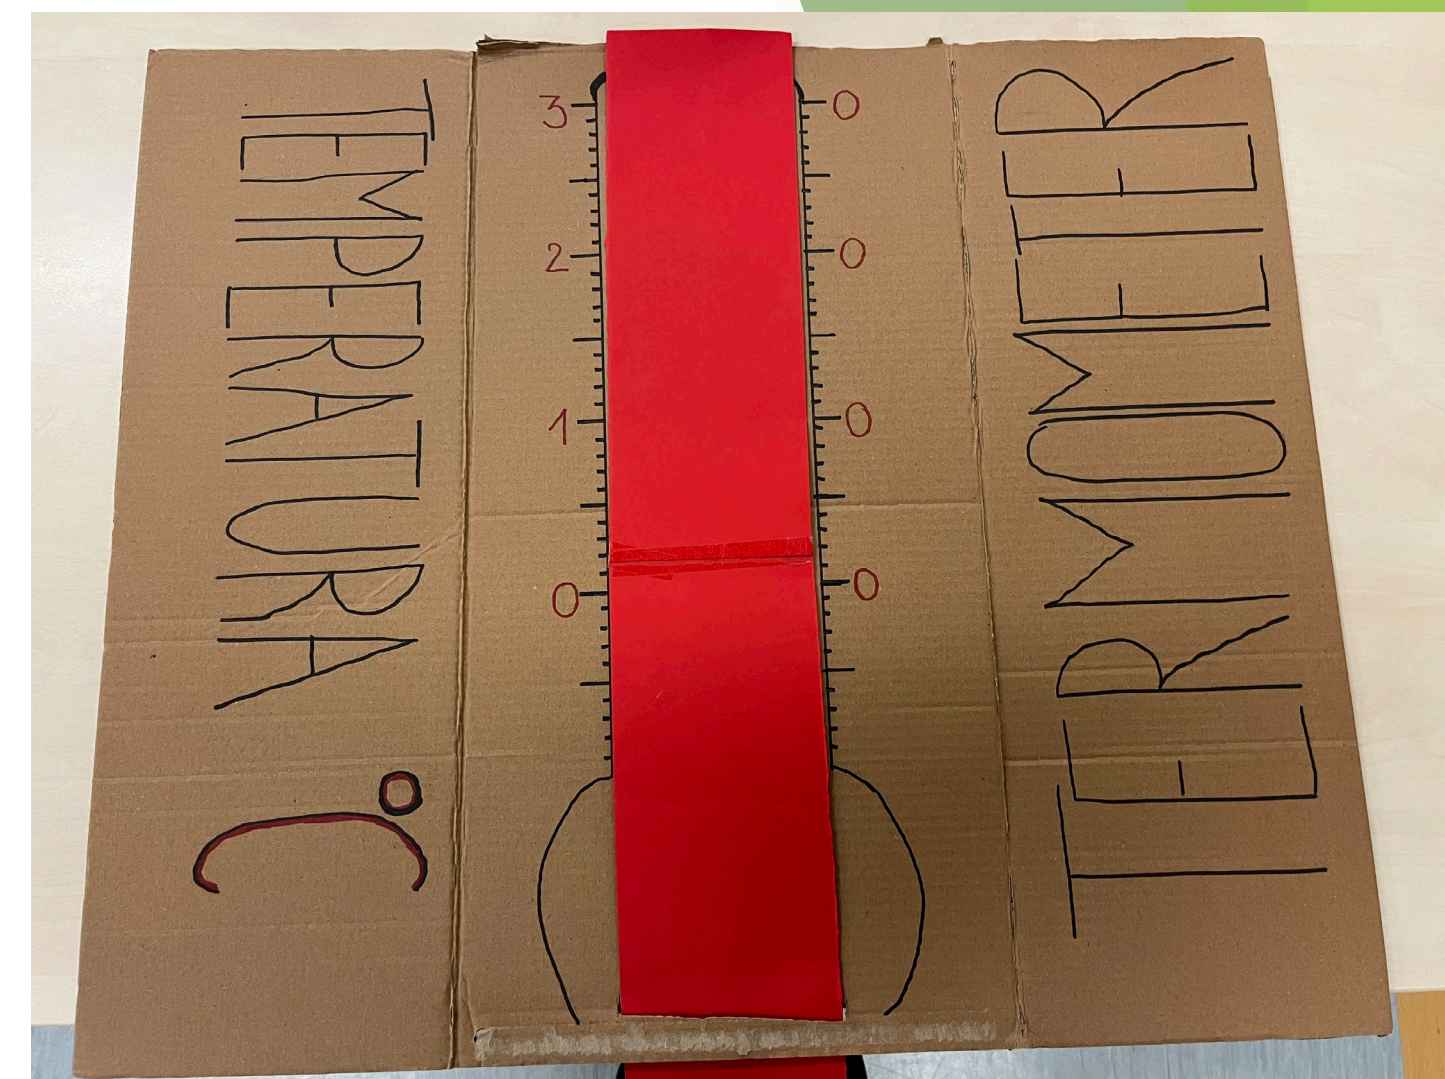 TEMPERATURA °C
3 0
2 0
1 0
0 0
TERMOMETER